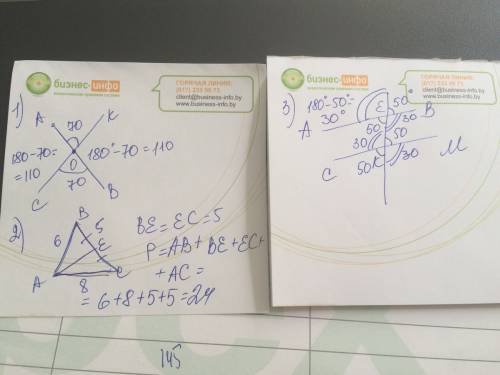 бизнес-инфо
ГОРЯЧАЯ ЛИНИЯ:
(017) 233 98 73
client@business-info.by
www.business-info.by
1)
A
K
70
180-70=
=110
O
180°-70=110
70
C
B
2)
B
6
5
E
A
C
8
BE=EC=5
P=AB+BE+EC+
+AC=
=6+8+5+5=24
бизнес-инфо
ГОРЯЧАЯ ЛИНИЯ:
(017) 233 98 73
client@business-info.by
www.business-info.by
3)
180°-50°=
30°
E
50
A
50
30
B
30
50
C
50
K
30
M
145